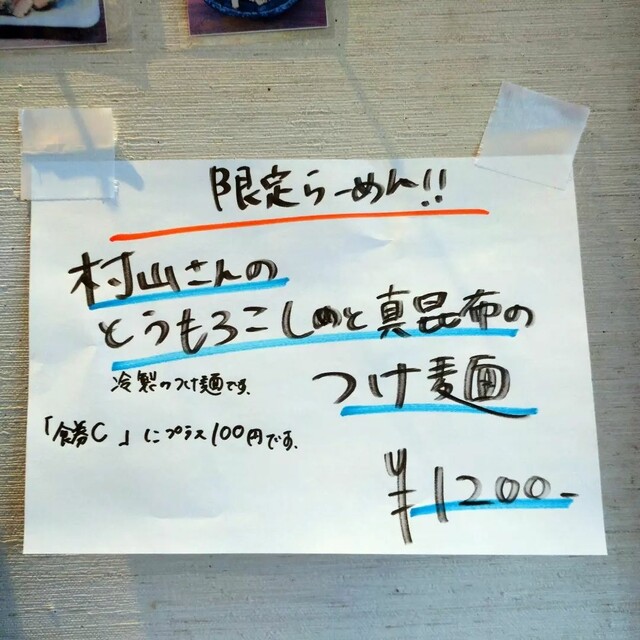 限定らーめん!!
村山さんの
とうもろこしめと真昆布の
つけ麺
冷製のつけ麺です。
「食券C」にプラス100円です。
¥1200-